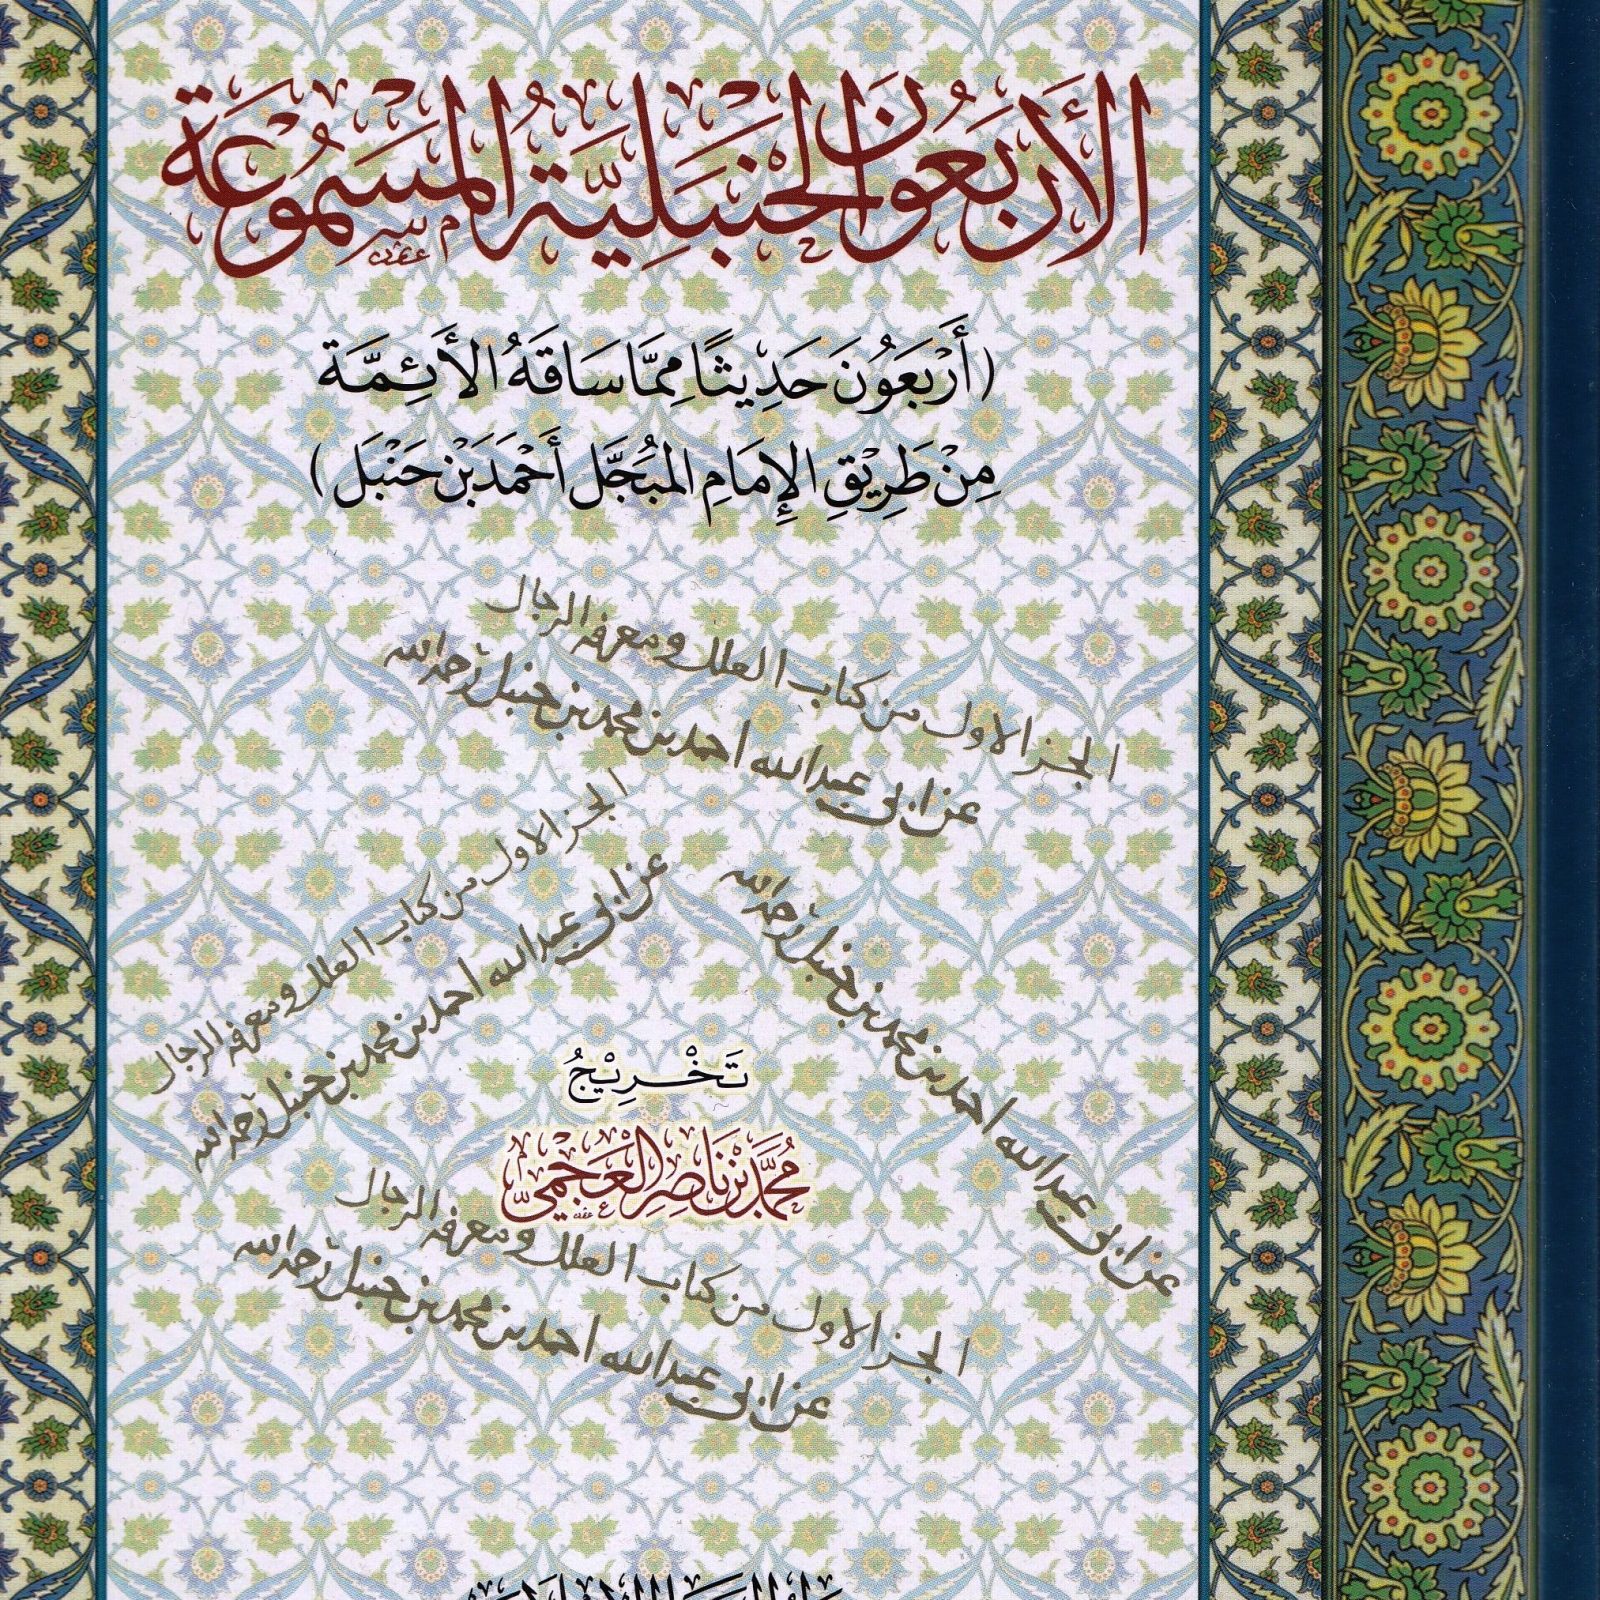 الأَرْبَعُونَ الحَنْبَلِيَّةُ المَسْمُوعَة
(أَرْبَعُونَ حَدِيثًا مِمَّا سَاقَهُ الأَئِمَّة
مِنْ طَرِيقِ الإِمَامِ المُبَجَّل أَحْمَدَ بْنِ حَنْبَل)
الجز الاول من كتاب العلل ومعرفه الرجال
عن ابي عبدالله احمد بن محمد بن حنبل رحمه الله
الجز الاول من كتاب العلل ومعرفه الرجال
عن ابي عبدالله احمد بن محمد بن حنبل رحمه الله
عن ابي عبدالله احمد بن محمد بن حنبل رحمه الله
تَخْرِيْجُ
مُحَمَّد بْن نَاصِر العَجَمِيّ
الجز الاول من كتاب العلل ومعرفه الرجال
عن ابي عبدالله احمد بن محمد بن حنبل رحمه الله